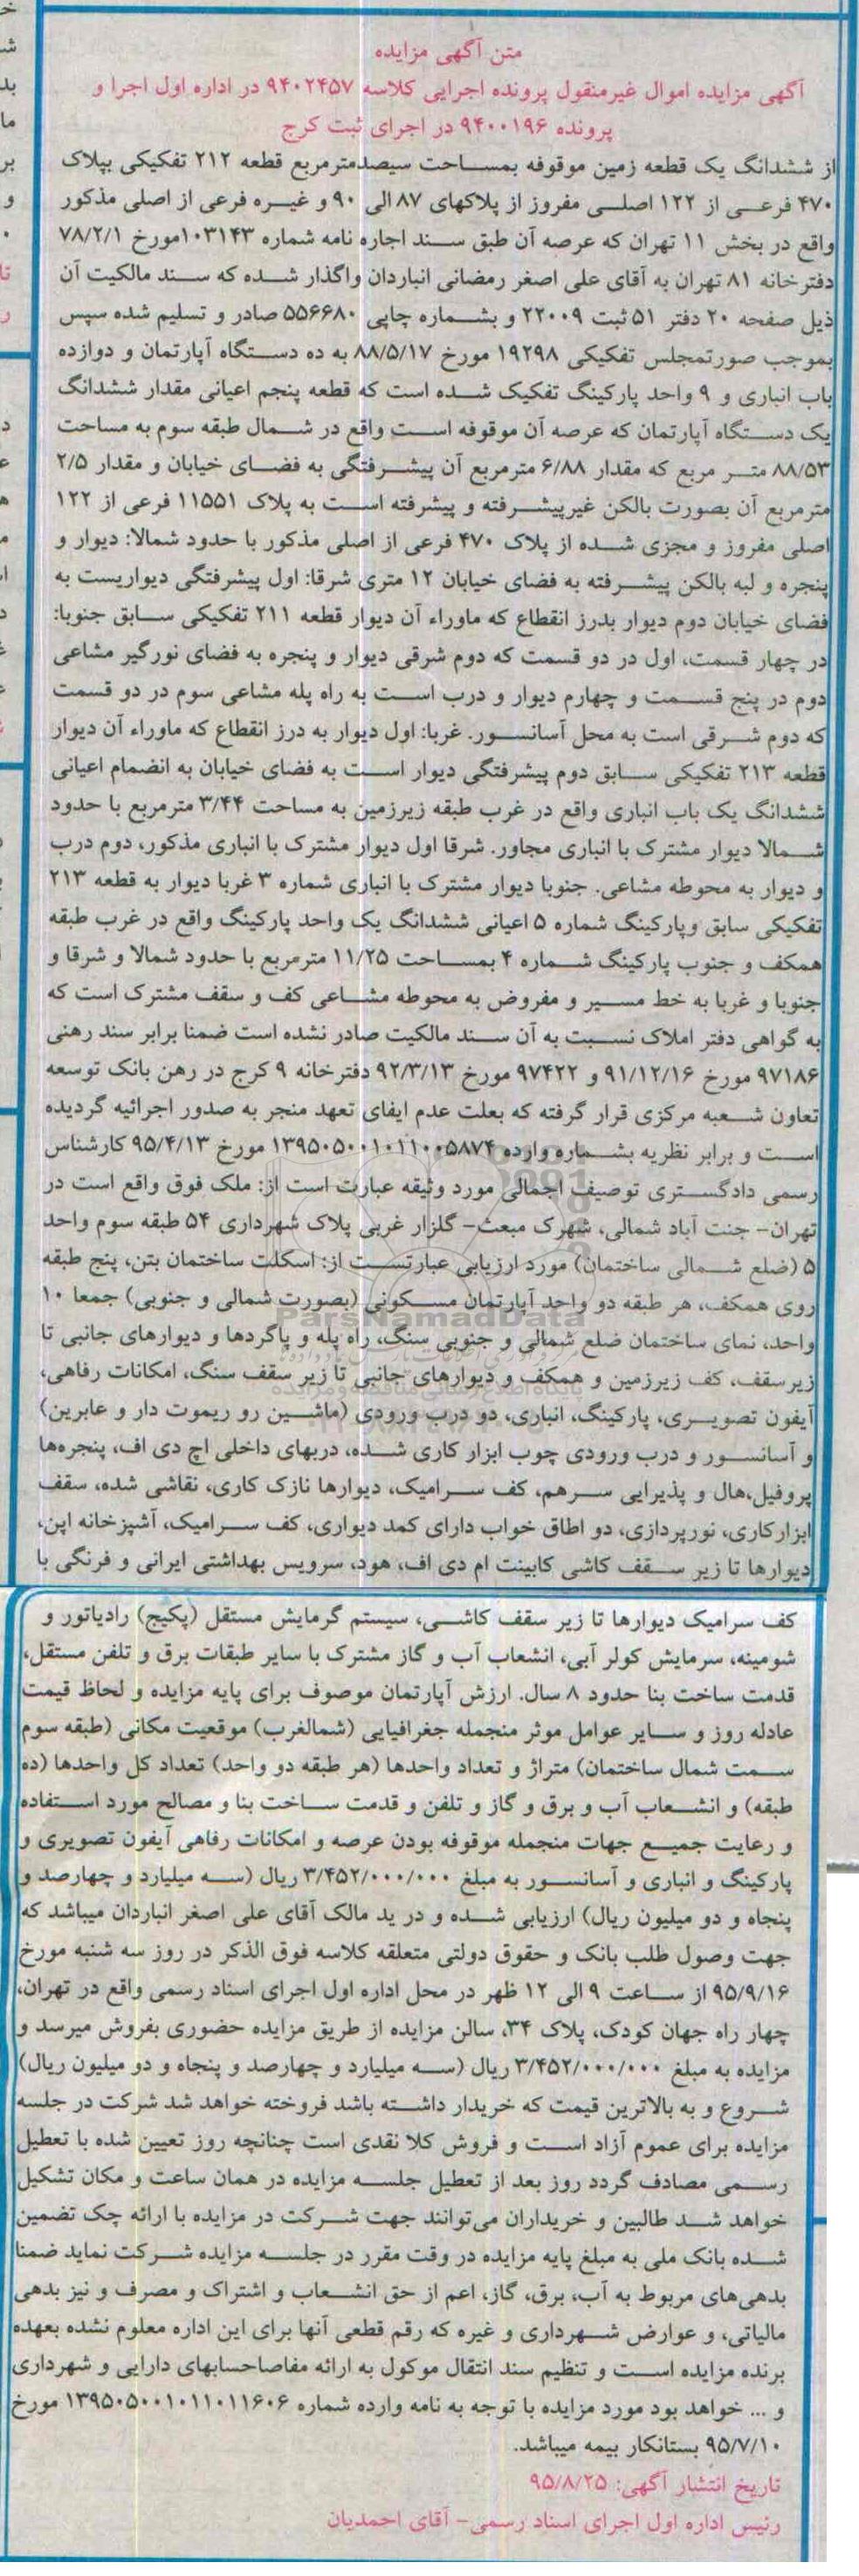 متن آگهی مزایده
آگهی مزایده اموال غیرمنقول پرونده اجرایی کلاسه ۹۴۰۲۴۵۷ در اداره اول اجرا و
پرونده ۹۴۰۰۱۹۶ در اجرای ثبت کرج
از ششدانگ یک قطعه زمین موقوفه بمساحت سیصدمترمربع قطعه ۲۱۲ تفکیکی بپلاک
۴۷۰ فرعی از ۱۲۲ اصلی مفروز از پلاکهای ۸۷ الی ۹۰ و غیره فرعی از اصلی مذکور
واقع در بخش ۱۱ تهران که عرصه آن طبق سند اجاره نامه شماره ۱۰۳۱۴۳مورخ ۷۸/۲/۱
دفترخانه ۸۱ تهران به آقای علی اصغر رمضانی انباردان واگذار شده که سند مالکیت آن
ذیل صفحه ۲۰ دفتر ۵۱ ثبت ۲۲۰۰۹ و بشماره چاپی ۵۵۶۶۸۰ صادر و تسلیم شده سپس
بموجب صورتمجلس تفکیکی ۱۹۲۹۸ مورخ ۸۸/۵/۱۷ به ده دستگاه آپارتمان و دوازده
باب انباری و ۹ واحد پارکینگ تفکیک شده است که قطعه پنجم اعیانی مقدار ششدانگ
یک دستگاه آپارتمان که عرصه آن موقوفه است واقع در شمال طبقه سوم به مساحت
۸۸/۵۳ متر مربع که مقدار ۶/۸۸ مترمربع آن پیشرفتگی به فضای خیابان و مقدار ۲/۵
مترمربع آن بصورت بالکن غیرپیشرفته و پیشرفته است به پلاک ۱۱۵۵۱ فرعی از ۱۲۲
اصلی مفروز و مجزی شده از پلاک ۴۷۰ فرعی از اصلی مذکور با حدود شمالا: دیوار و
پنجره و لبه بالکن پیشرفته به فضای خیابان ۱۲ متری شرقا: اول پیشرفتگی دیواریست به
فضای خیابان دوم دیوار بدرز انقطاع که ماوراء آن دیوار قطعه ۲۱۱ تفکیکی سابق جنوبا:
در چهار قسمت، اول در دو قسمت که دوم شرقی دیوار و پنجره به فضای نورگیر مشاعی
دوم در پنج قسمت و چهارم دیوار و درب است به راه پله مشاعی سوم در دو قسمت
که دوم شرقی است به محل آسانسور. غربا: اول دیوار به درز انقطاع که ماوراء آن دیوار
قطعه ۲۱۳ تفکیکی سابق دوم پیشرفتگی دیوار است به فضای خیابان به انضمام اعیانی
ششدانگ یک باب انباری واقع در غرب طبقه زیرزمین به مساحت ۳/۴۴ مترمربع با حدود
شمالا دیوار مشترک با انباری مجاور. شرقا اول دیوار مشترک با انباری مذکور، دوم درب
و دیوار به محوطه مشاعی. جنوبا دیوار مشترک با انباری شماره ۳ غربا دیوار به قطعه ۲۱۳
تفکیکی سابق وپارکینگ شماره ۵ اعیانی ششدانگ یک واحد پارکینگ واقع در غرب طبقه
همکف و جنوب پارکینگ شماره ۴ بمساحت ۱۱/۲۵ مترمربع با حدود شمالا و شرقا و
جنوبا و غربا به خط مسیر و مفروض به محوطه مشاعی کف و سقف مشترک است که
به گواهی دفتر املاک نسبت به آن سند مالکیت صادر نشده است ضمنا برابر سند رهنی
۹۷۱۸۶ مورخ ۹۱/۱۲/۱۶ و ۹۷۴۲۲ مورخ ۹۲/۳/۱۳ دفترخانه ۹ کرج در رهن بانک توسعه
تعاون شعبه مرکزی قرار گرفته که بعلت عدم ایفای تعهد منجر به صدور اجرائیه گردیده
است و برابر نظریه بشماره وارده ۱۳۹۵۰۵۰۰۱۰۱۱۰۰۵۸۷۴ مورخ ۹۵/۴/۱۳ کارشناس
رسمی دادگستری توصیف اجمالی مورد وثیقه عبارت است از: ملک فوق واقع است در
تهران- جنت آباد شمالی، شهرک مبعث- گلزار غربی پلاک شهرداری ۵۴ طبقه سوم واحد
۵ (ضلع شمالی ساختمان) مورد ارزیابی عبارتست از: اسکلت ساختمان بتن، پنج طبقه
روی همکف، هر طبقه دو واحد آپارتمان مسکونی (بصورت شمالی و جنوبی) جمعا ۱۰
ParsNamadData
واحد، نمای ساختمان ضلع شمالی و جنوبی سنگ، راه پله و پاگردها و دیوارهای جانبی تا
زیرسقف، کف زیرزمین و همکف و دیوارهای جانبی تا زیر سقف سنگ، امکانات رفاهی،
آیفون تصویری، پارکینگ، انباری، دو درب ورودی (ماشین رو ریموت دار و عابرین)
و آسانسور و درب ورودی چوب ابزار کاری شده، دربهای داخلی اچ دی اف، پنجره‌ها
پروفیل،هال و پذیرایی سرهم، کف سرامیک، دیوارها نازک کاری، نقاشی شده، سقف
ابزارکاری، نورپردازی، دو اطاق خواب دارای کمد دیواری، کف سرامیک، آشپزخانه اپن،
دیوارها تا زیر سقف کاشی کابینت ام دی اف، هود، سرویس بهداشتی ایرانی و فرنگی با
کف سرامیک دیوارها تا زیر سقف کاشی، سیستم گرمایش مستقل (پکیج) رادیاتور و
شومینه، سرمایش کولر آبی، انشعاب آب و گاز مشترک با سایر طبقات برق و تلفن مستقل،
قدمت ساخت بنا حدود ۸ سال. ارزش آپارتمان موصوف برای پایه مزایده و لحاظ قیمت
عادله روز و سایر عوامل موثر منجمله جغرافیایی (شمالغرب) موقعیت مکانی (طبقه سوم
سمت شمال ساختمان) متراژ و تعداد واحدها (هر طبقه دو واحد) تعداد کل واحدها (ده
طبقه) و انشعاب آب و برق و گاز و تلفن و قدمت ساخت بنا و مصالح مورد استفاده
و رعایت جمیع جهات منجمله موقوفه بودن عرصه و امکانات رفاهی آیفون تصویری و
پارکینگ و انباری و آسانسور به مبلغ ۳/۴۵۲/۰۰۰/۰۰۰ ریال (سه میلیارد و چهارصد و
پنجاه و دو میلیون ریال) ارزیابی شده و در ید مالک آقای علی اصغر انباردان میباشد که
جهت وصول طلب بانک و حقوق دولتی متعلقه کلاسه فوق الذکر در روز سه شنبه مورخ
۹۵/۹/۱۶ از ساعت ۹ الی ۱۲ ظهر در محل اداره اول اجرای اسناد رسمی واقع در تهران،
چهار راه جهان کودک، پلاک ۳۴، سالن مزایده از طریق مزایده حضوری بفروش میرسد و
مزایده به مبلغ ۳/۴۵۲/۰۰۰/۰۰۰ ریال (سه میلیارد و چهارصد و پنجاه و دو میلیون ریال)
شروع و به بالاترین قیمت که خریدار داشته باشد فروخته خواهد شد شرکت در جلسه
مزایده برای عموم آزاد است و فروش کلا نقدی است چنانچه روز تعیین شده با تعطیل
رسمی مصادف گردد روز بعد از تعطیل جلسه مزایده در همان ساعت و مکان تشکیل
خواهد شد طالبین و خریداران می‌توانند جهت شرکت در مزایده با ارائه چک تضمین
شده بانک ملی به مبلغ پایه مزایده در وقت مقرر در جلسه مزایده شرکت نماید ضمنا
بدهی‌های مربوط به آب، برق، گاز، اعم از حق انشعاب و اشتراک و مصرف و نیز بدهی
مالیاتی، و عوارض شهرداری و غیره که رقم قطعی آنها برای این اداره معلوم نشده بعهده
برنده مزایده است و تنظیم سند انتقال موکول به ارائه مفاصاحسابهای دارایی و شهرداری
و ... خواهد بود مورد مزایده با توجه به نامه وارده شماره ۱۳۹۵۰۵۰۰۱۰۱۱۰۱۱۶۰۶ مورخ
۹۵/۷/۱۰ بستانکار بیمه میباشد.
تاریخ انتشار آگهی: ۹۵/۸/۲۵
رئیس اداره اول اجرای اسناد رسمی- آقای احمدیان